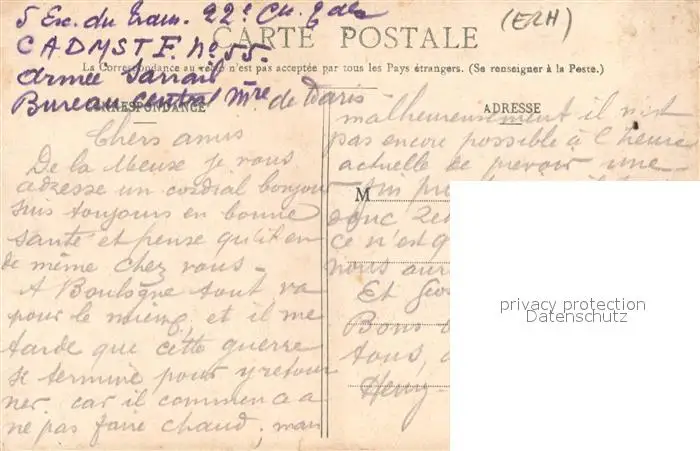 5 Esc. du Train. 22e Cie
(ERH)
CARTE POSTALE
C A D M S T F. No 55-
La Correspondance au recto n'est pas acceptée par tous les Pays étrangers. (Se renseigner à la Poste.)
Armée Sarrail
Bureau central Mre de Paris
CORRESPONDANCE
ADRESSE
Chers amis
De la Meuse je vous
adresse un cordial bonjour
suis toujours en bonne
santé et pense qu'il en
de même chez vous -
A Boulogne tout va
pour le mieux, et il me
tarde que cette guerre
se termine pour y retour
ner. car il commence a
ne pas faire chaud, mais
malheureusement il n'est
pas encore possible à l'heure
actuelle de prévoir une
M
donc
ce n'est
nous
Et
Bons
tous,
Henry
privacy protection
Datenschutz